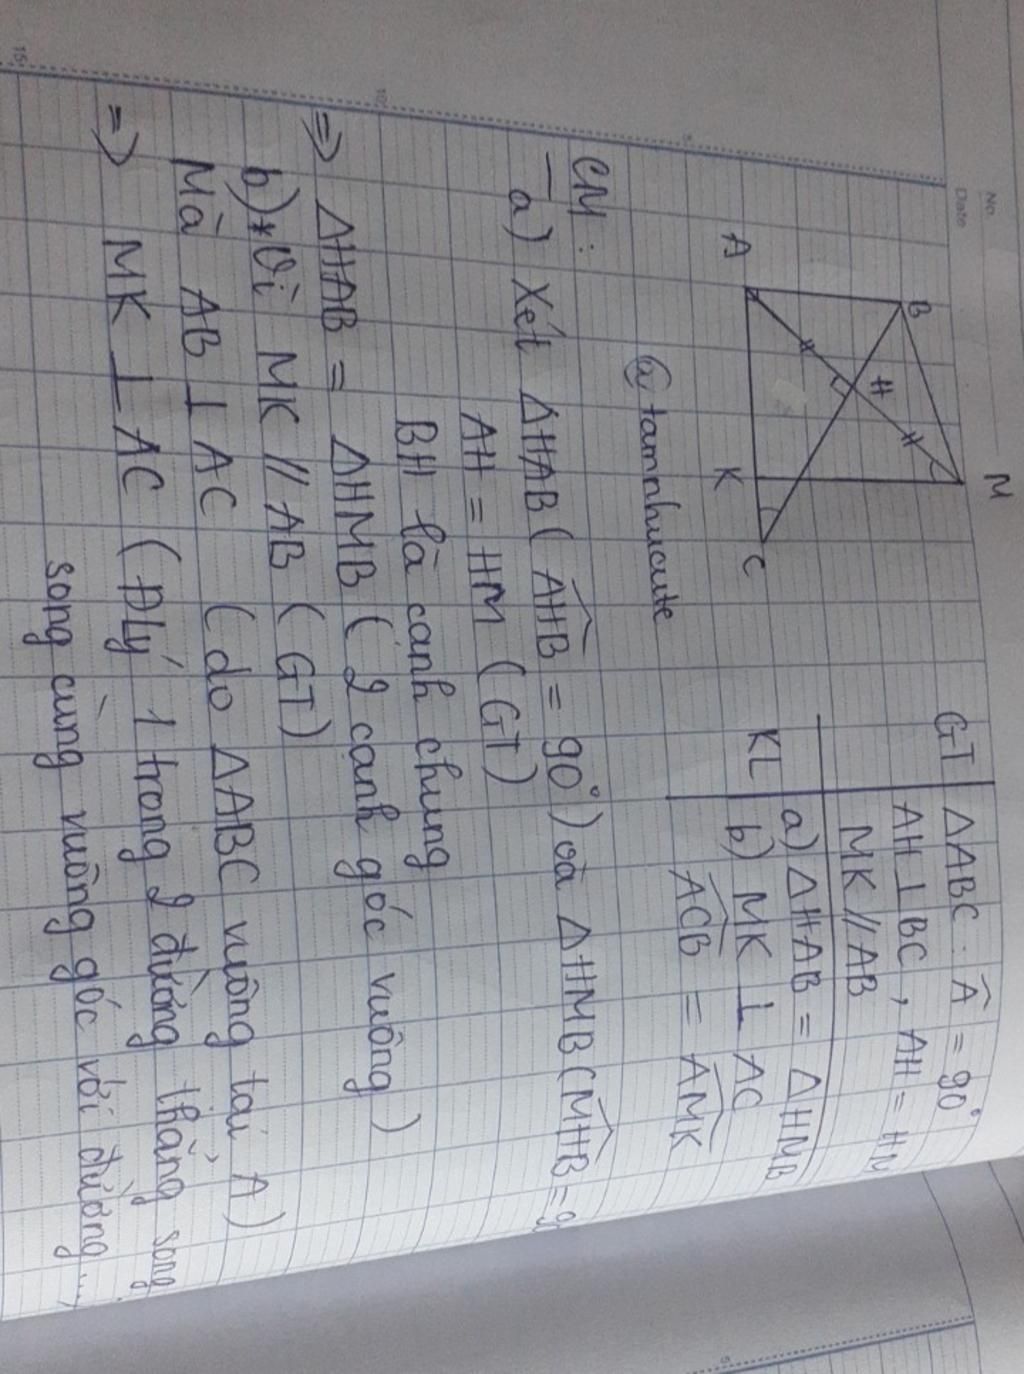 No.
Date
B
M
H
A
K
C
GT ΔABC: Â = 90°
AH ⊥ BC, AH = HM
MK // AB
KL a) ΔHAB = ΔHMB
b) MK ⊥ AC
ACB = AMK
@tamnhucute
CM:
a) Xét ΔHAB (AHB = 90°) và ΔHMB (MHB =
AH = HM (GT)
BH là cạnh chung
=> ΔHAB = ΔHMB (2 cạnh góc vuông)
b)* Vì MK // AB (GT)
Mà AB ⊥ AC (do ΔABC vuông tại A)
=> MK ⊥ AC (Đlý 1 trong 2 đường thẳng song
song cùng vuông góc với đường...)
5
10
15
5